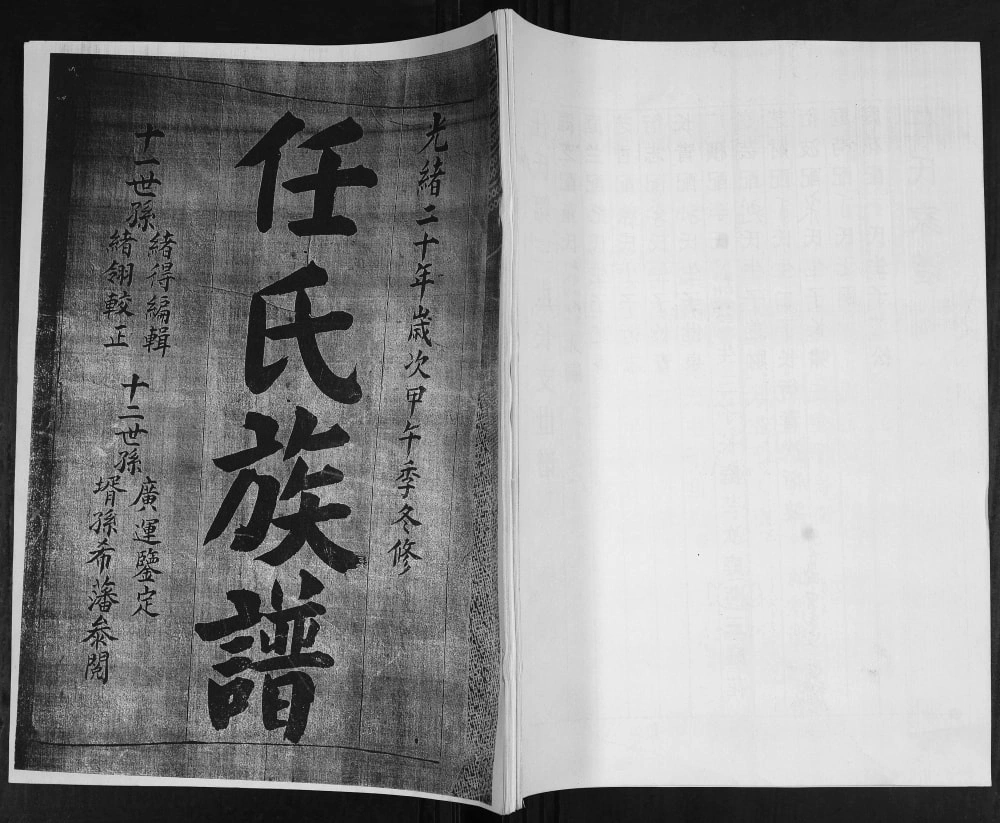 光緒二十年歲次甲午季冬修
任氏族譜
十一世孫
緒得編輯
緒翎較正
十二世孫
廣運鑒定
壻孫希藩叅閱